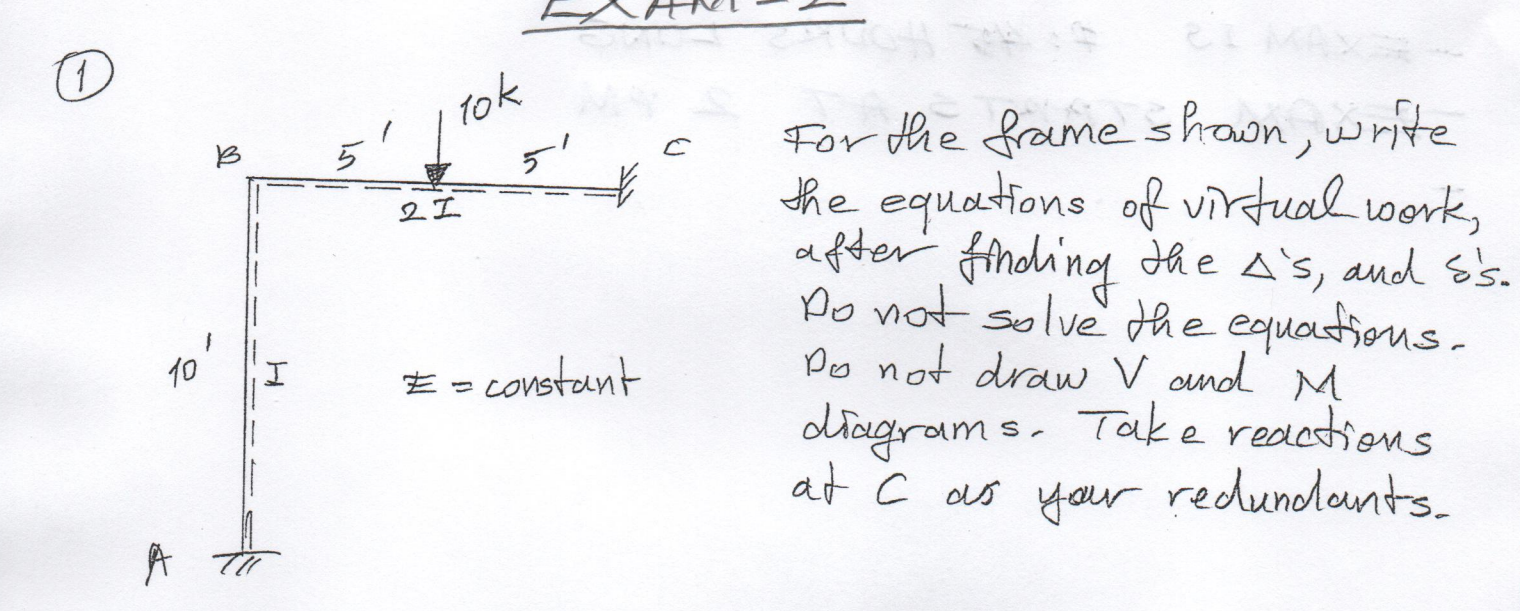 EXAM-2
1
10k
B 5' 5' C
2I
10' I E = constant
A
For the frame shown, write
the equations of virtual work,
after finding the Δ's, and δ's.
Do not solve the equations.
Do not draw V and M
diagrams. Take reactions
at C as your redundants.